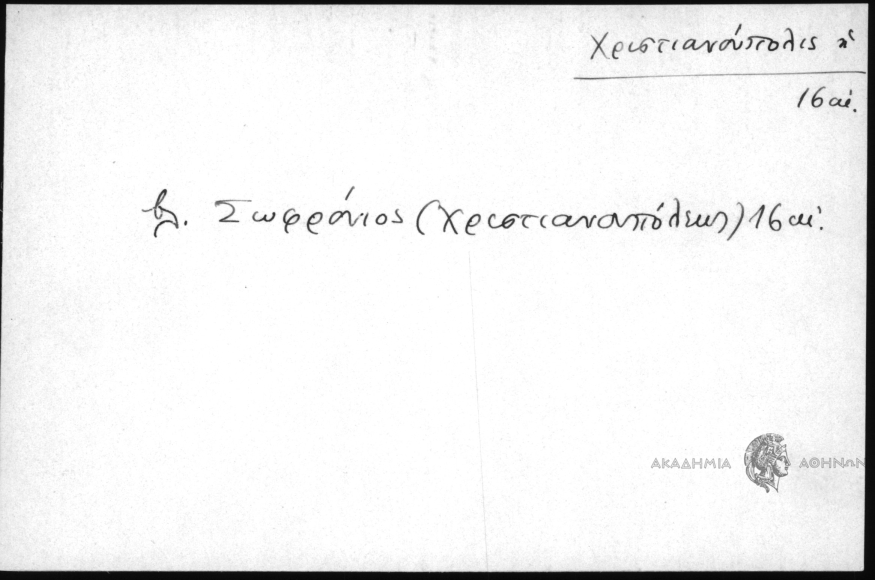 Χριστιανούπολις ἡ
16 αἰ.
βλ. Σωφρόνιος (Χριστιανουπόλεως) 16 αἰ.
ΑΚΑΔΗΜΙΑ ΑΘΗΝΩΝ